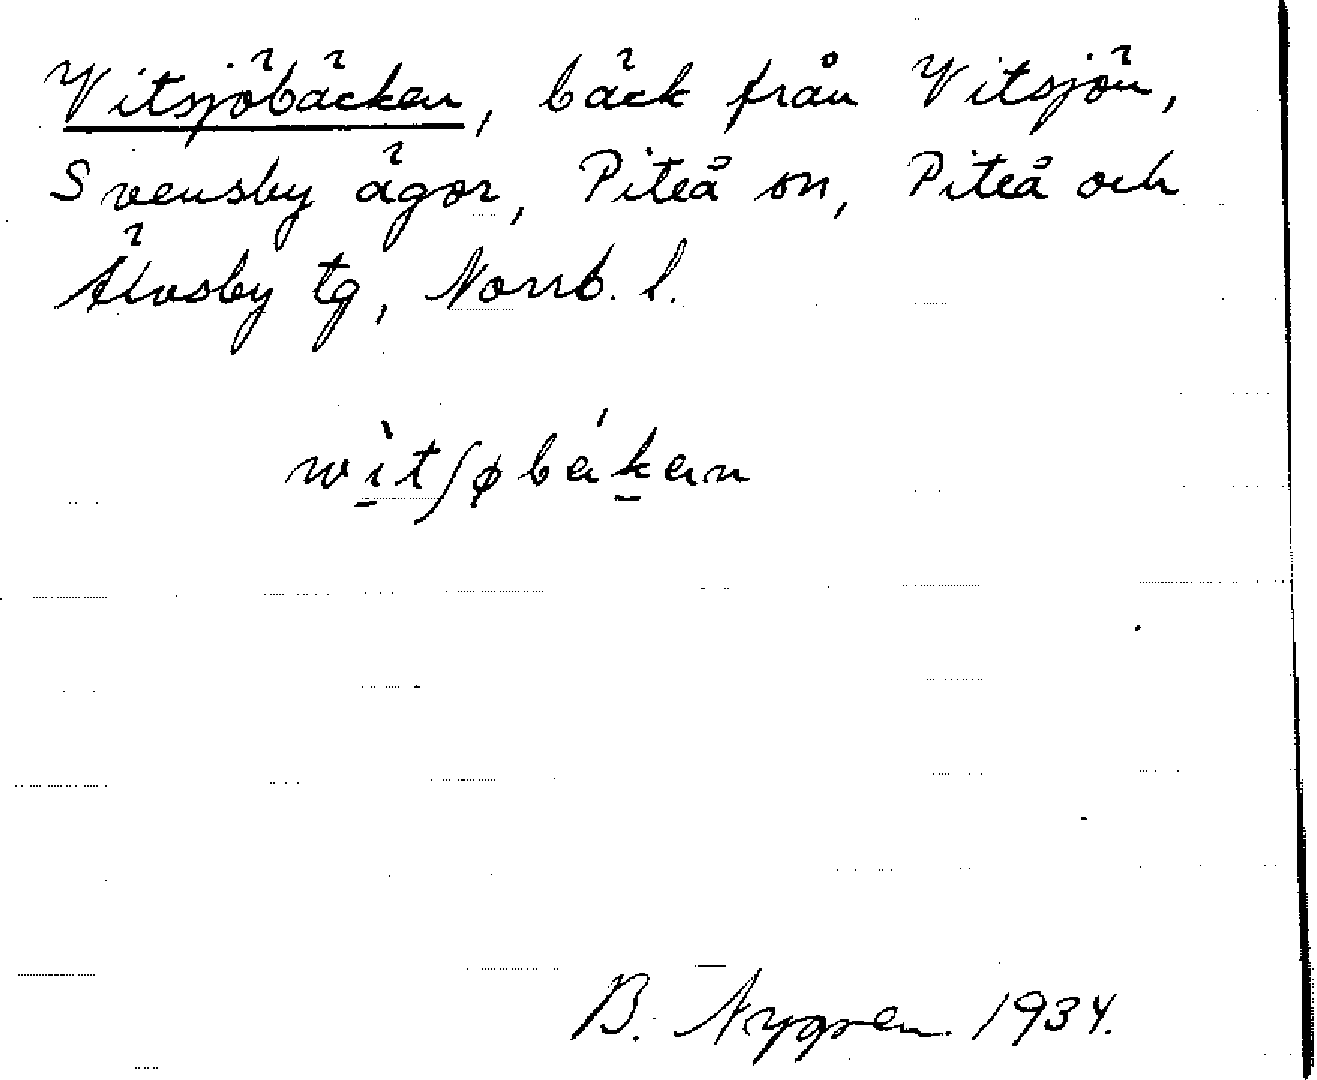 Vitsjöbäcken, bäck från Vitsjön,
Svensby ägor, Piteå sn, Piteå och
Älvsby tg, Norrb. l.
wìtʃøbékan
B. Nygren 1934.